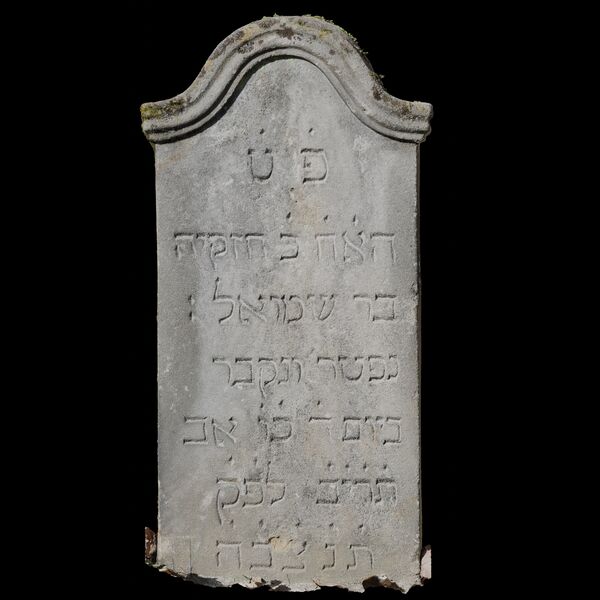 פ ט
האח כ חזקיה
בר שמואל :
נפטר ונקבר
ביום ד כו אב
תריב לפק
ת נ צ ב ה